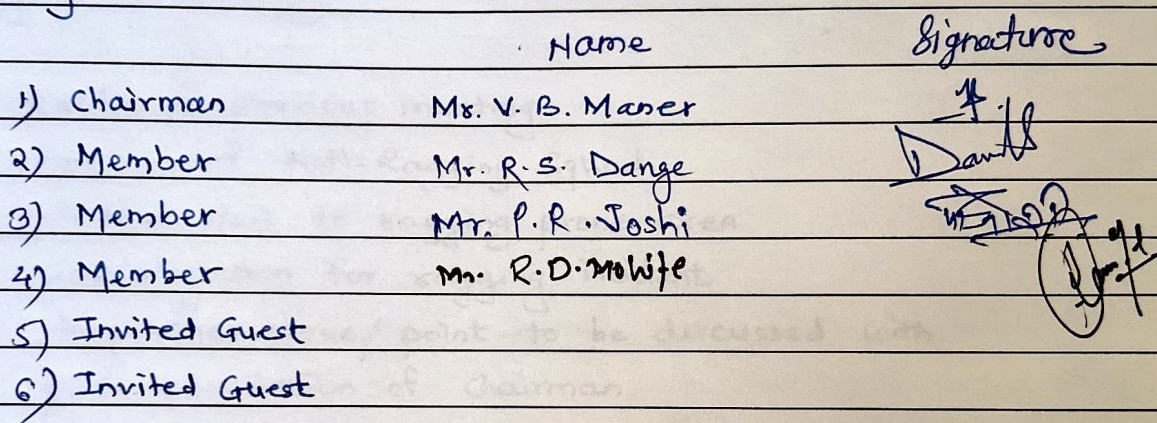 Name Signature
1) Chairman Mr. V. B. Maner
2) Member Mr. R. S. Dange
3) Member Mr. P. R. Joshi
4) Member Mr. R. D. Mohite
5) Invited Guest
6) Invited Guest